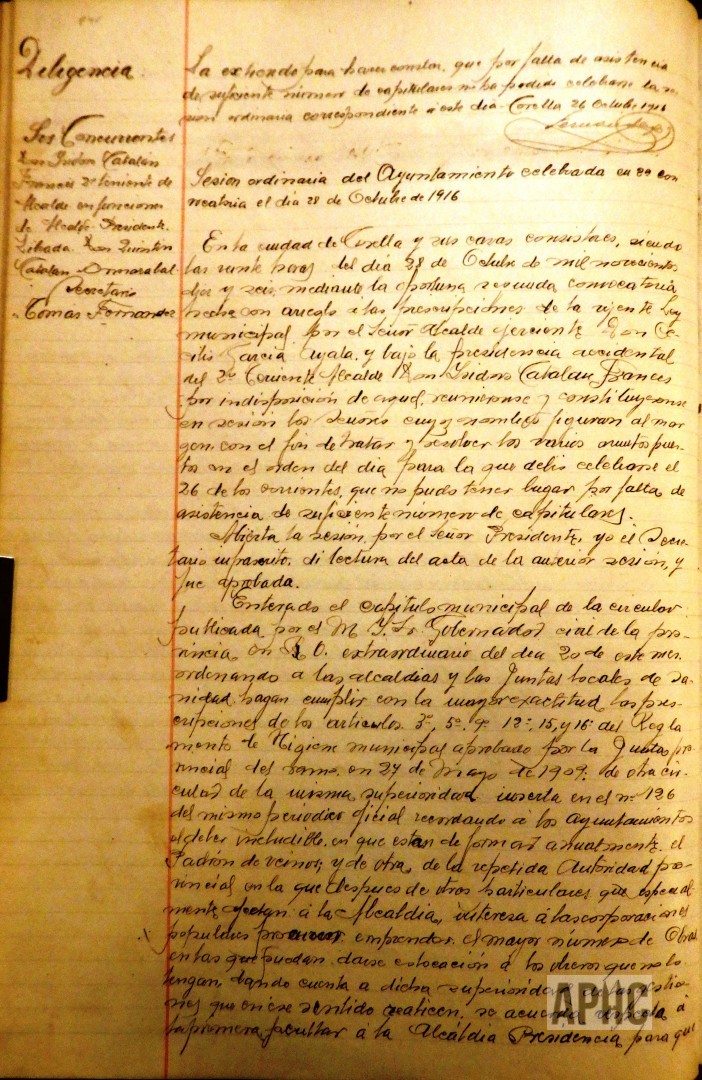 Diligencia.
La extiendo para hacer constar, que por falta de asistencia
de suficiente número de capitulares no ha podido celebrarse la se-
sion ordinaria correspondiente á este dia. Corella 26 Octubre 1916
Fernandez
Sres Concurrentes
Don Isidoro Catalan
Francés 2º teniente de
Alcalde en funciones
de Alcalde Presidente.
Don Quintin
Catalan Omarabal
Secretario
Tomas Fernandez
Sesion ordinaria del Ayuntamiento celebrada en 2ª con
vocatoria el dia 28 de Octubre de 1916
En la ciudad de Corella y sus casas consistores, siendo
las veinte horas del dia 28 de Octubre de mil novecientos
diez y seis, mediante la oportuna segunda convocatoria
hecha con arreglo á las prescripciones de la vijente Ley
municipal por el Señor Alcalde gerciente Don Ce-
cilio Garcia Ayala, y bajo la presidencia accidental
del 2º Teniente Alcalde Don Isidoro Catalan Frances
por indisposición de aquel, reunieronse y constituyeronse
en sesión los Señores cuyos nombres figuran al mar
gen, con el fin de tratar y resolver los varios asuntos pues-
tos en el orden del dia para la que debio celebrarse el
26 de los corrientes, que no pudo tener lugar por falta de
asistencia de suficiente número de capitulares.
Abierta la sesión, por el Señor Presidente, yo el Secre-
tario infrascrito, di lectura del acta de la anterior sesion, y
fue aprobada.
Enterado el capitulo municipal de la circular
publicada por el M. I. Sr. Gobernador civil de la pro-
vincia, en B. O. extraordinario del dia 20 de este mes.
ordenando a las alcaldias y las Juntas locales de Sa-
nidad, hagan cumplir con la mayor exactitud, las pres-
cripciones de los articulos 3º, 5º, 9º 12º, 15, y 16º del Regla
mento de Higiene municipal aprobado por la Junta pro
vincial del ramo, en 27 de Mayo de 1909: de otra cir-
cular de la misma superioridad inserta en el nº 126
del mismo periodico oficial recordando á los ayuntamientos
el deber includible, en que estan de formar anualmente el
Padron de vecinos; y de otra, de la repetida Autoridad pro-
vincial en la que despues de otros particulares que especial
mente afectan á la Alcaldia, interesa á las corporaciones
populares procuren emprender el mayor número de Obras
en las que puedan darse colocación á los obreros que no lo
tengan, dando cuenta a dicha superioridad de las gestio
nes que en ese sentido realicen, se acuerda respecto á
la primera, facultar á la Alcaldia Presidencia para que
APHC